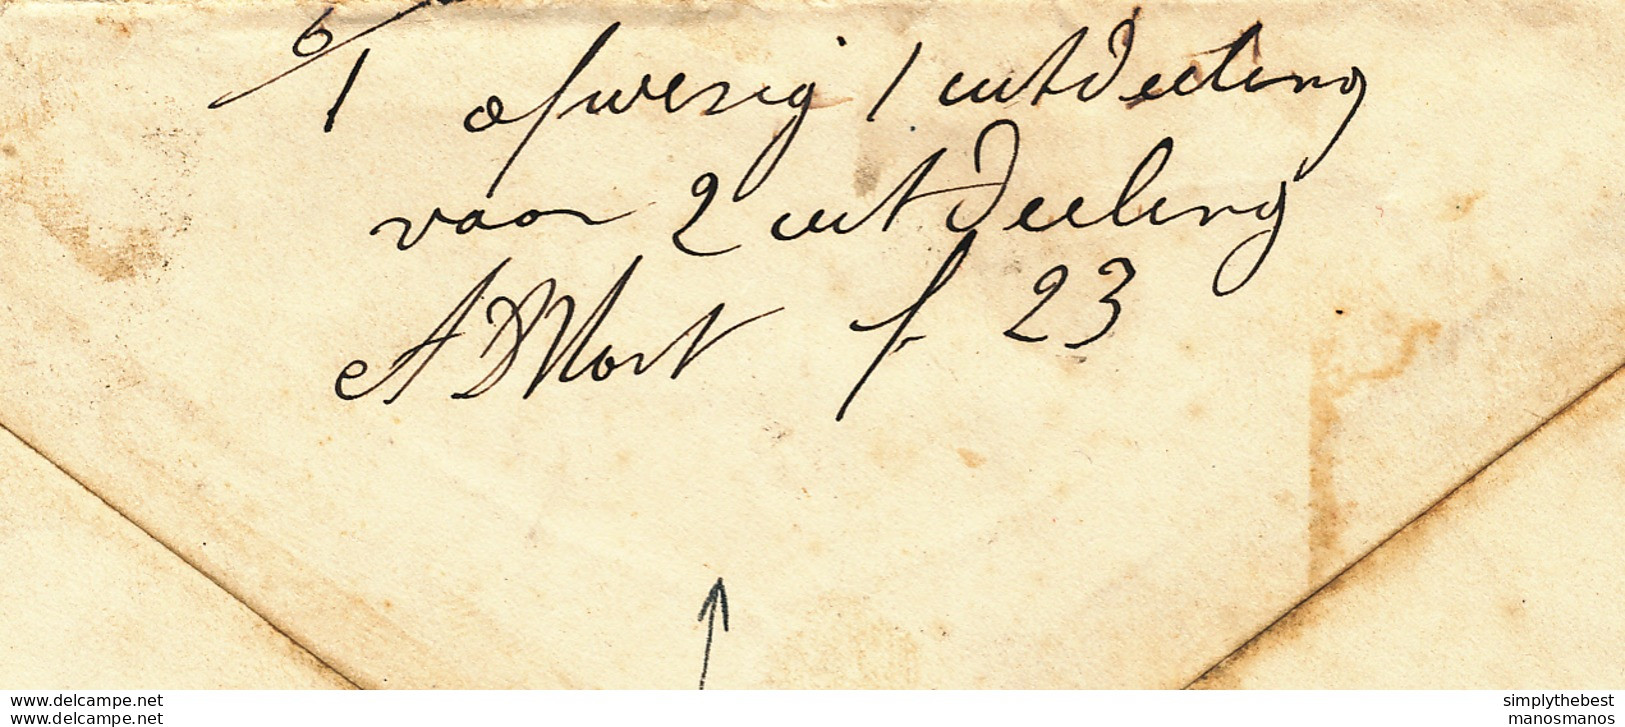 6/1 afwezig 1 uitdeeling
voor 2 uitdeeling
f 23
www.delcampe.net simplythebest
www.delcampe.net manosmanos